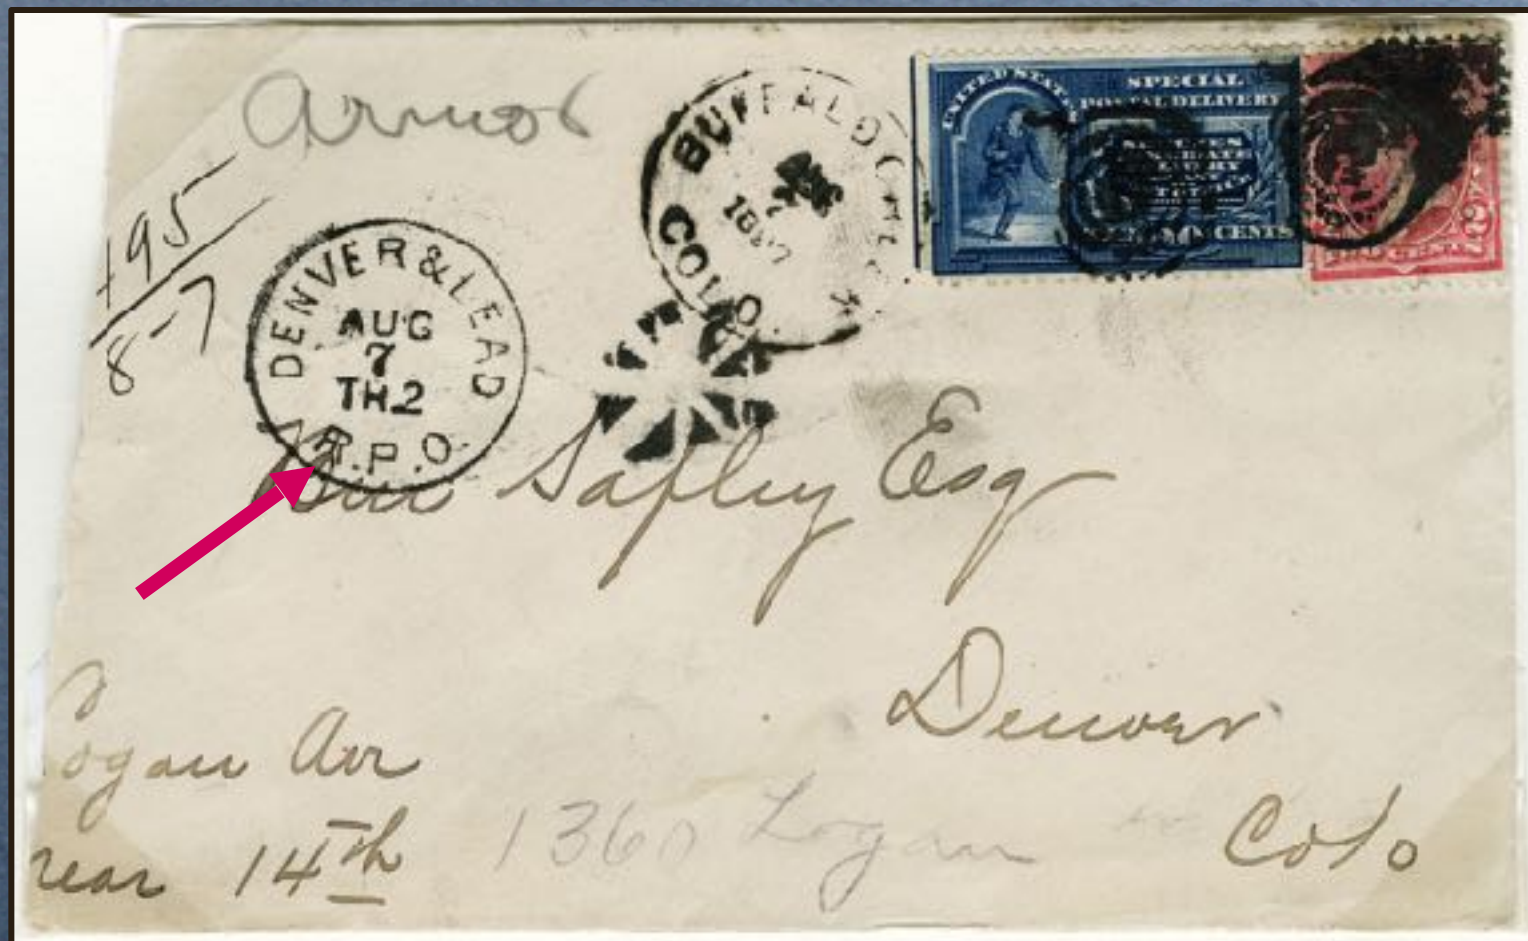 Armor
495
8-7
DENVER & LEAD
AUG
7
TR.2
R.P.O.
BUFFALO CREEK
COLO.
AUG
7
UNITED STATES
SPECIAL
POSTAL DELIVERY
TEN CENTS
2
Safley Esq
Denver
Colo
Logan Avr
near 14th
1360 Logan